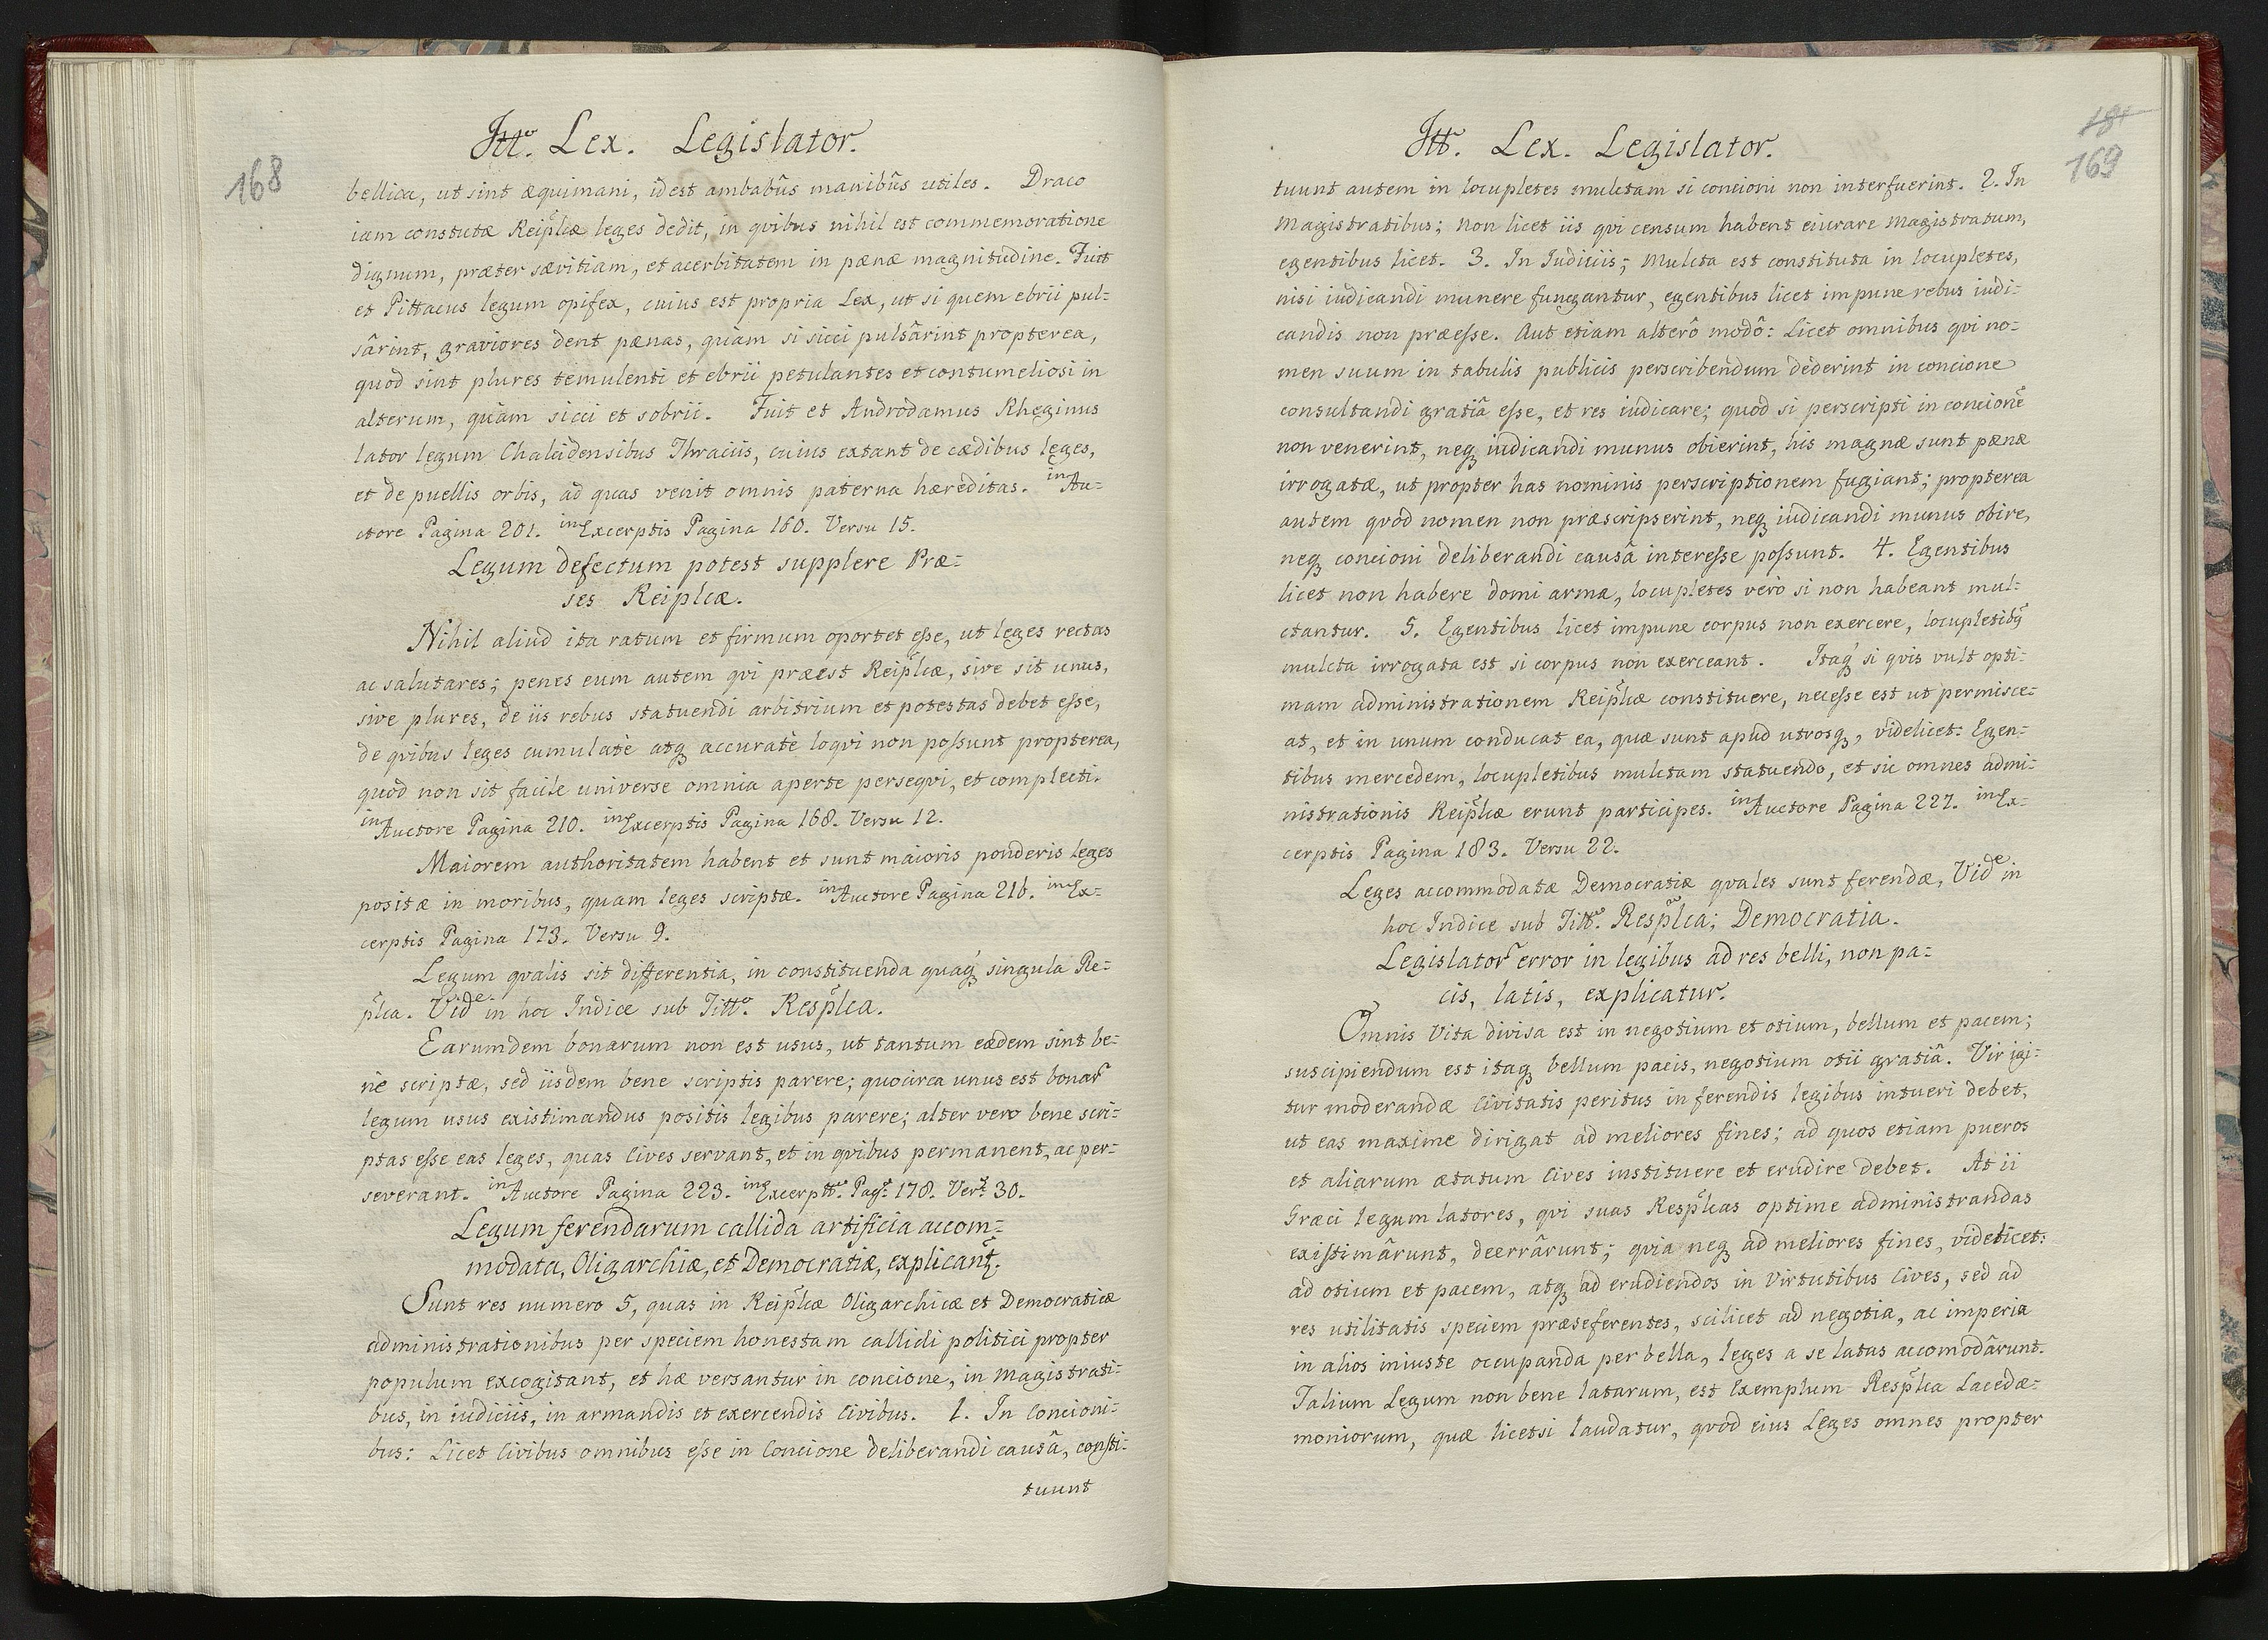 168
Titt⁰. Lex. Legislator.
bellica, ut sint æquimani, idest ambabûs manibûs utiles. Draco
iam constutæ Reip̃licæ leges dedit, in qvibus nihil est commemoratione
dignum, præter sævitiam, et acerbitatem in pænæ magnitudine. Fuit
et Pittacus legum opifex, cuius est propria Lex, ut si quem ebrii pul=
sârint, graviores dent pænas, quàm si sicci pulsârint propterea,
quod sint plures temulenti et ebrii petulantes et contumeliosi in
alterum, quàm sicci et sobrii. Fuit et Androdamus Rheginus
lator legum Chalcidensibus Thraciis, cuius extant de cædibus leges,
et de puellis orbis, ad quas venit omnis paterna hæreditas. in Au=
ctore Pagina 201. in Excerptis Pagina 160. Versu 15.
Legum defectum potest supplere Præ=
ses Reiplicæ.
Nihil aliud ita ratum et firmum oportet esse, ut leges rectas
ac salutares; penes eum autem qvi præest Reip̃licæ, sive sit unus,
sive plures, de iis rebus statuendi arbitrium et potestas debet esse,
de qvibus leges cumulatè atq accuratè loqvi non possunt propterea,
quod non sit facile universe omnia aperte perseqvi, et complecti.
in Auctore Pagina 210. in Excerptis Pagina 168. Versu 12.
Maiorem authoritatem habent et sunt maioris ponderis leges
positæ in moribus, quam leges scriptæ. in Auctore Pagina 216. in Ex=
cerptis Pagina 173. Versu 9.
Legum qvalis sit differentia, in constituenda quaq́ singula Re=
p̃lca. Vide in hoc Indice sub Titt⁰. Resp̃lca.
Earumdem bonarum non est usus, ut tantum eædem sint be=
ne scriptæ, sed iisdem bene scriptis parere; quocirca unus est bonar̃
legum usus existimandus positis legibus parere; alter vero bene scri=
ptas esse eas leges, quas Cives servant, et in qvibus permanent, ac per=
severant. in Auctore Pagina 223. in Excerptt⁰. Pag. 178. Vers. 30.
Legum ferendarum callida artificia accom=
modata, Oligarchiæ, et Democratiæ, explicant̃.
Sunt res numero 5, quas in Reip̃licæ Oligarchicæ et Democraticæ
administrationibus per speciem honestam callidi politici propter
populum excogitant, et hæ versantur in concione, in Magistrati=
bus, in iudiciis, in armandis et exercendis Civibus. 1. In Concioni=
bus: Licet Civibus omnibus esse in Concione deliberandi causâ, consti=
tuunt
181
169
Titt. Lex. Legislator.
tuunt autem in locupletes mulctam si concioni non interfuerint. 2. In
Magistratibus; Non licet iis qvi censum habent eiurare Magistratum,
egentibus licet. 3. In Iudiciis; Mulcta est constituta in locupletes,
nisi iudicandi munere fungantur, egentibus licet impune rebus iudi=
candis non præesse. Aut etiam alterô modô: Licet omnibus qvi no=
men suum in tabulis publicis perscribendum dederint in concione
consultandi gratiâ esse, et res iudicare; quod si perscripti in concionẽ
non venerint, neq iudicandi munus obierint, his magnæ sunt pænæ
irrogatæ, ut propter has nominis perscriptionem fugiant; propterea
autem qvod nomen non præscripserint, neq iudicandi munus obire,
neq concioni deliberandi causâ interesse possunt. 4. Egentibus
licet non habere domi arma, locupletes verò si non habeant mul=
ctantur. 5. Egentibus licet impune corpus non exercere, locupletibq̃
mulcta irrogata est si corpus non exerceant. Itaq́ si qvis vult opti=
mam administrationem Reip̃licæ constituere, necesse est ut permisce=
at, et in unum conducat ea, quæ sunt apud utrosq, videlicet: Egen=
tibus mercedem, locupletibus mulctam statuendo, et sic omnes admi=
nistrationis Reip̃licæ erunt participes. in Auctore Pagina 227. in Ex=
cerptis Pagina 183. Versu 22.
Leges accommodatæ Democratiæ qvales sunt ferendæ, Vide in
hoc Indice sub Titt⁰. Resp̃lca; Democratia.
Legislator̃ error in legibus ad res belli, non pa=
cis, latis, explicatur.
Omnis Vita divisa est in negotium et otium, bellum et pacem;
suscipiendum est itaq bellum pacis, negotium otii gratiâ. Vir igi=
tur moderandæ Civitatis peritus in ferendis legibus intueri debet,
ut eas maxime dirigat ad meliores fines; ad quos etiam pueros
et aliarum ætatum Cives instituere et erudire debet. At ii
Græci legum latores, qvi suas Resp̃licas optime administrandas
existimârunt, deerrârunt; qvia neq ad meliores fines, videlicet:
ad otium et pacem, atq ad erudiendos in Virtutibus Cives, sed ad
res utilitatis speciem præseferentes, scilicet ad negotia, ac imperia
in alios iniuste occupanda per bella, leges a se latas accomodârunt.
Talium Legum non bene latarum, est Exemplum Resp̃lca Lacedæ=
moniorum, quæ licetsi laudatur, qvod eius Leges omnes propter